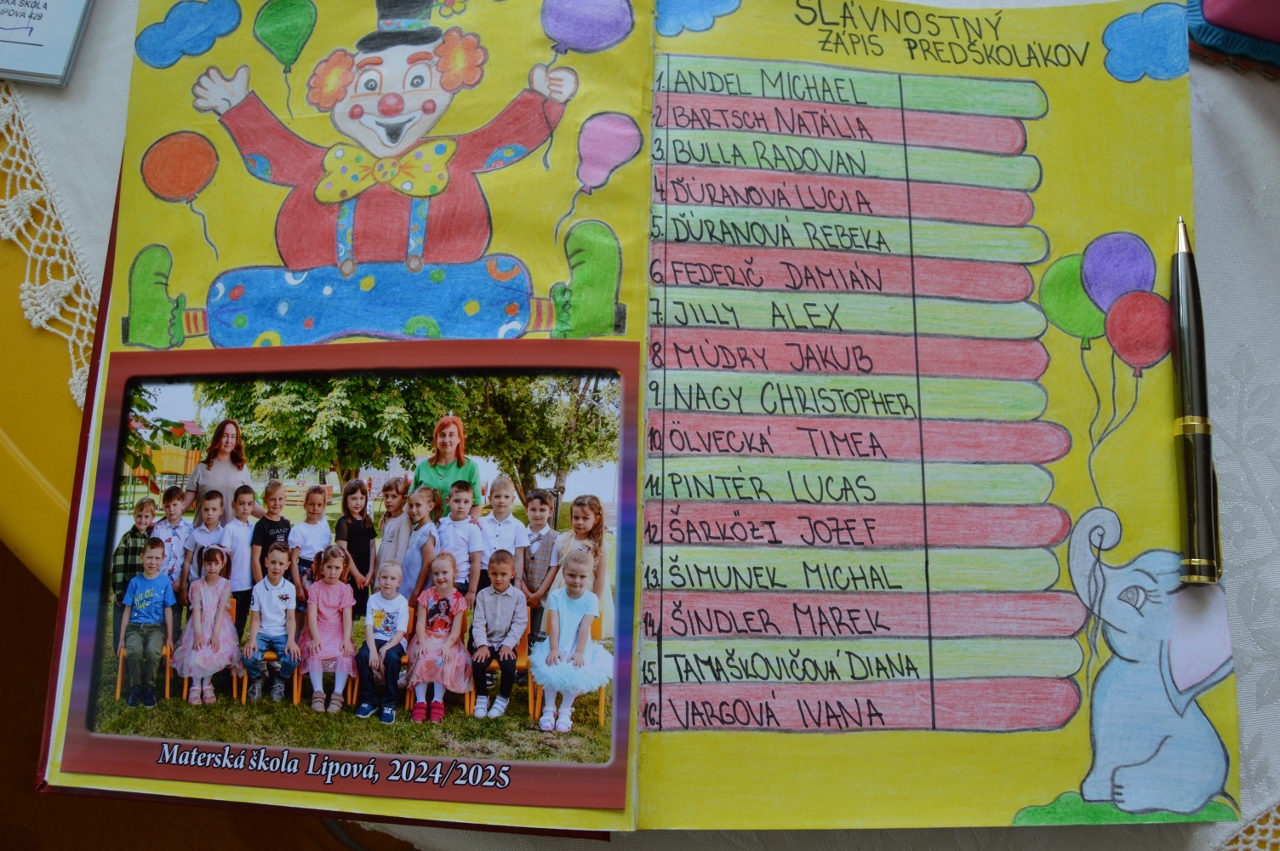 SKÁ ŠKOLA
LIPOVÁ 429
SLÁVNOSTNÝ
ZÁPIS PREDŠKOLÁKOV
1. ANDEL MICHAEL
2 BARTSCH NATÁLIA
3 BULLA RADOVAN
4 ĎÚRANOVÁ LUCIA
5. ĎÚRANOVÁ REBEKA
6 FEDERIČ DAMIÁN
7. JILLY ALEX
8 MÚDRY JAKUB
9. NAGY CHRISTOPHER
10. ÖLVECKÁ TIMEA
11. PINTÉR LUCAS
12. ŠARKÖZI JOZEF
13. ŠIMUNEK MICHAL
14. ŠINDLER MAREK
15. TAMAŠKOVIČOVÁ DIANA
16. VARGOVÁ IVANA
Materská škola Lipová, 2024/2025